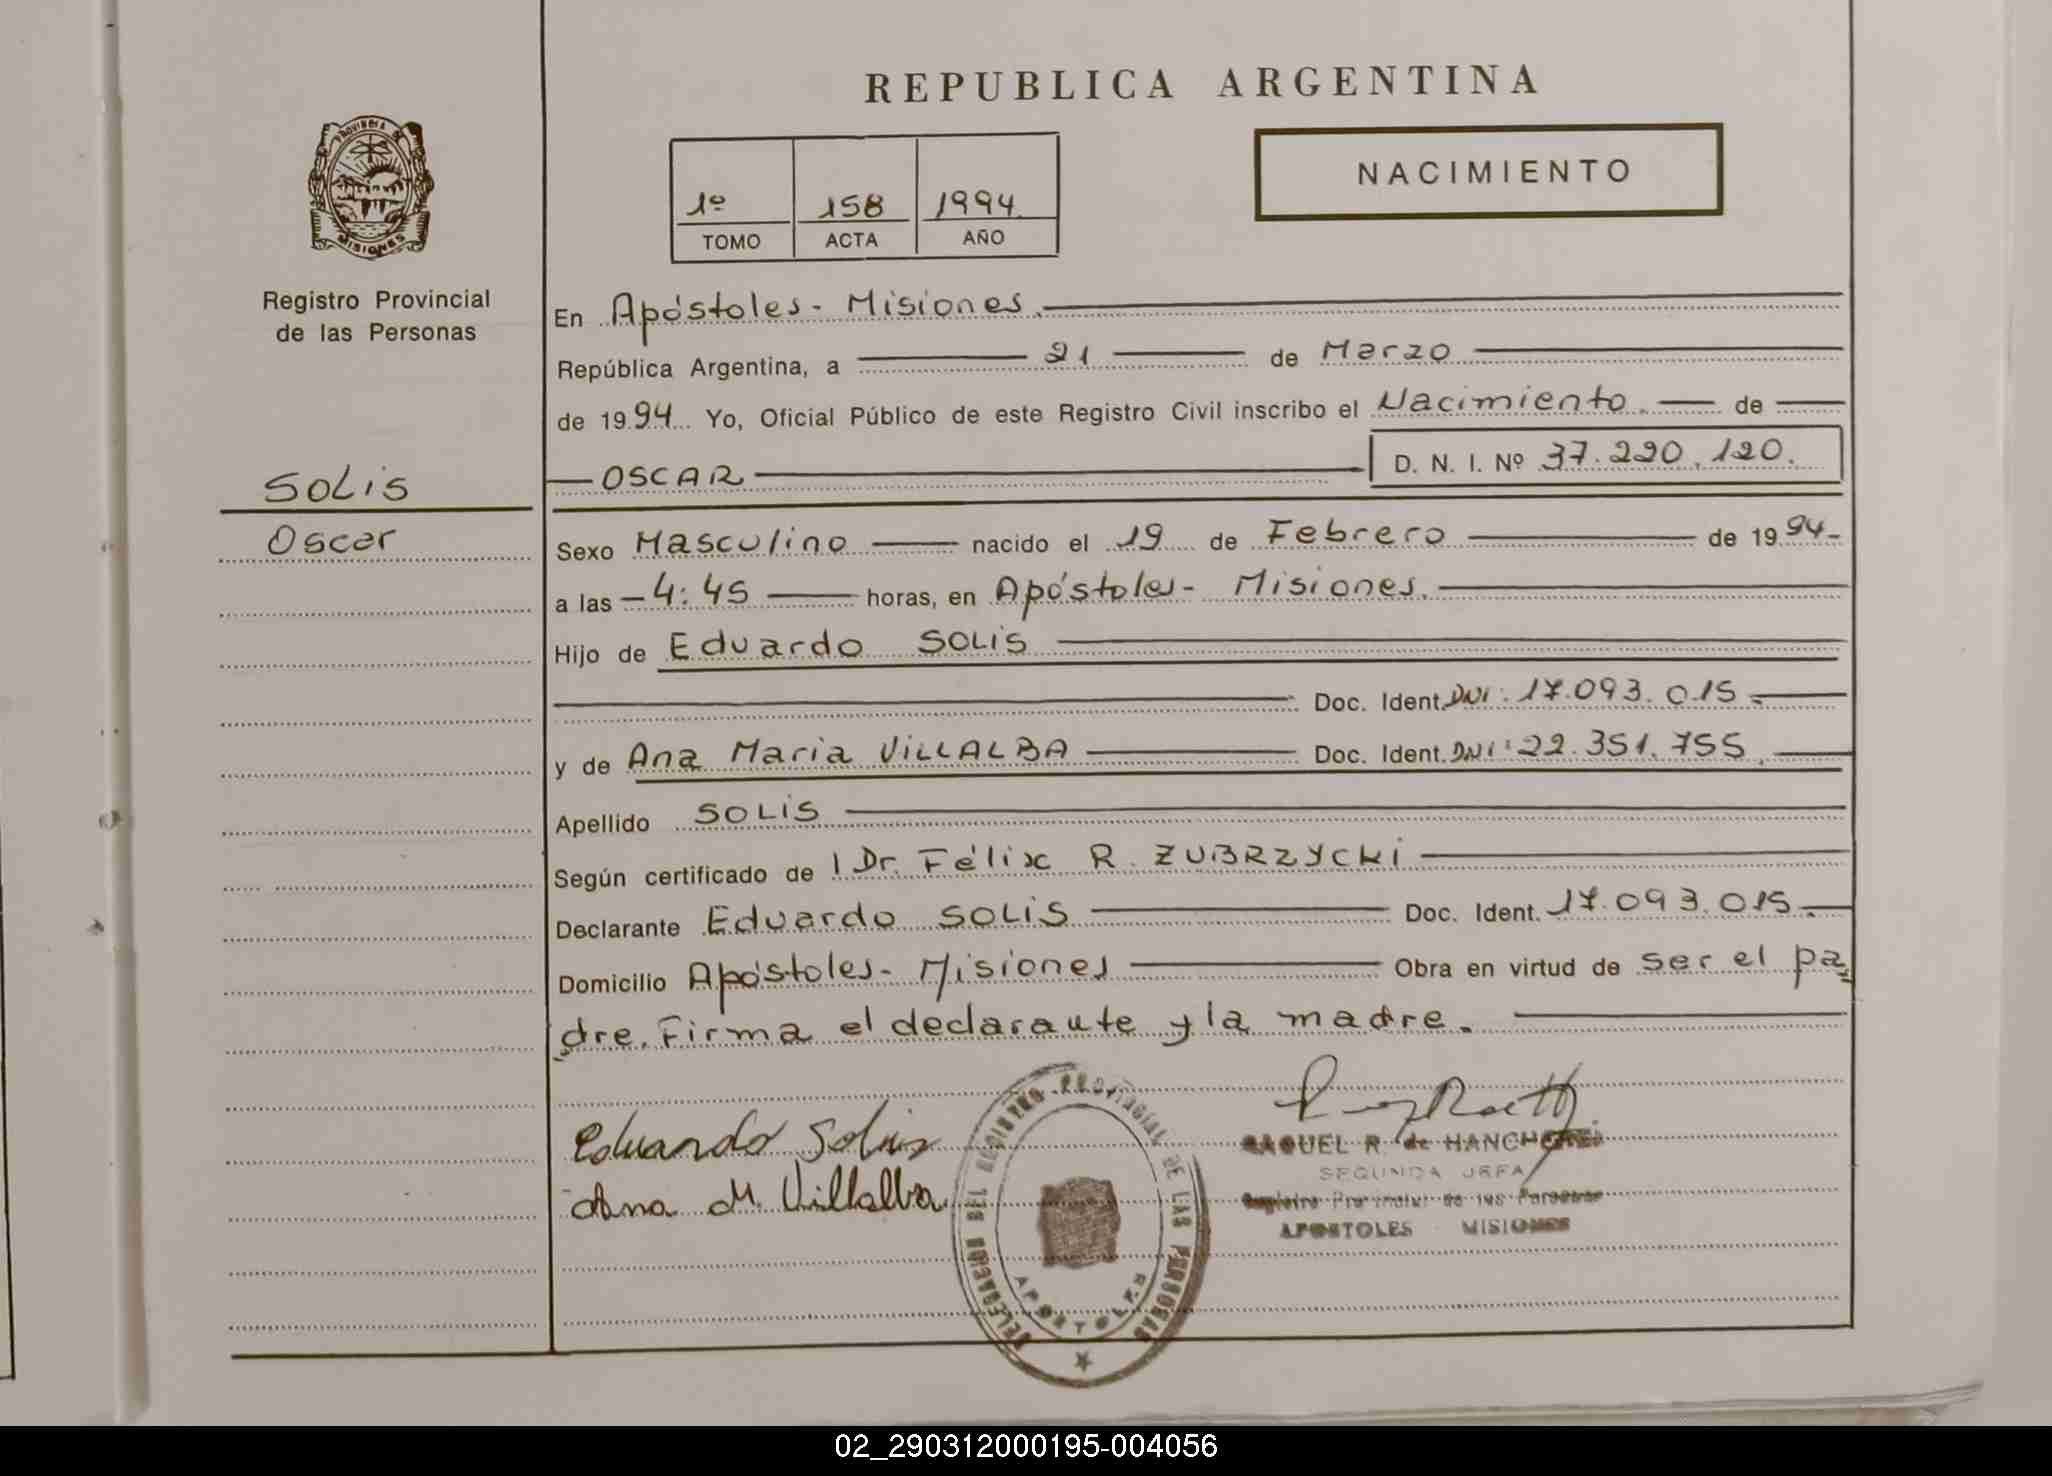 REPUBLICA ARGENTINA
PROVINCIA DE
MISIONES
Registro Provincial
de las Personas
NACIMIENTO
1º 158 1994
TOMO ACTA AÑO
En Apóstoles - Misiones.
República Argentina, a 21 de Marzo
de 1994 Yo, Oficial Público de este Registro Civil inscribo el Nacimiento. de
OSCAR D. N. I. Nº 37.220.120.
SOLIS
Oscar
Sexo Masculino nacido el 19 de Febrero de 1994-
a las - 4:45 horas, en Apóstoles - Misiones.
Hijo de Eduardo SOLIS
Doc. Ident. DNI: 17.093.015.
y de Ana Maria VILLALBA Doc. Ident. DNI: 22.351.755.
Apellido SOLIS
Según certificado de l Dr. Félix R. ZUBRZYCKI
Declarante Eduardo SOLIS Doc. Ident. 17.093.015.
Domicilio Apóstoles - Misiones Obra en virtud de ser el pa
dre. Firma el declarante y la madre.
Eduardo Solis
Ana M. Villalba
DELEGACION DEL REGISTRO PROVINCIAL DE LAS PERSONAS
APOSTOLES
RAQUEL R. de
SEGUNDA JEFA
Registro Provincial de las Personas
APOSTOLES MISIONES
02_290312000195-004056